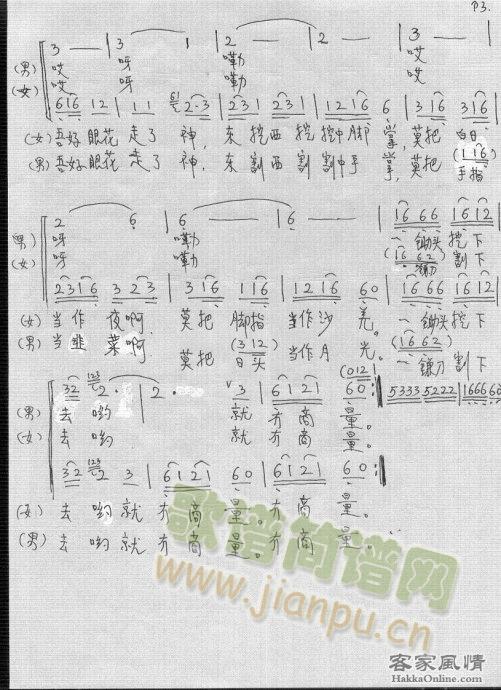 P3.
3 — | 3 1 | 2 — | 2 — | 3 — |
(男) 哎 呀 嘞 哎
(女) 哎 呀 嘞 哎
616 12 | 11 61 2·3 | 231 231 | 1216 6 | 316 316 |
(女) 吾好眼花 走了 神, 东挖西挖挖中脚掌,莫把白日
(116)
(男) 吾好眼花 走了 神, 东割西割割中手掌,莫把手指
2 6 | 6 — | 6 — — | 16 66 1612 |
(男) 呀 嘞 一锄头挖下
(16 62)
(女) 呀 嘞 一镰刀割下
2316 323 | 316 116 | 1216 60 | 16 66 1612 |
(女) 当作夜啊, 莫把脚指当作沙羌。一锄头挖下
(312) (16 62)
(男) 当韭菜啊 莫把日头当作月光。一镰刀割下
(012)
32 123 2· | 2· 3 | 6121 60 :‖ 5333 5222 | 1666 60
(男) 去哟 就冇商量。
(女) 去哟 就冇商量。
32 123 2 3 | 6121 60 | 6121 60 :‖
(女) 去哟就冇商量。冇商量。
(男) 去哟就冇商量。冇商量。
歌谱简谱网
www.jianpu.cn
客家風情
HakkaOnline.com